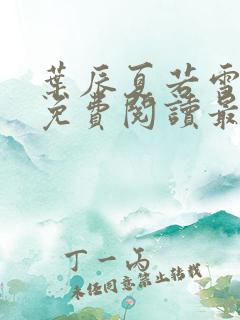 葉辰夏若雪
免費閱讀最
丁一丙
未经同意禁止转载